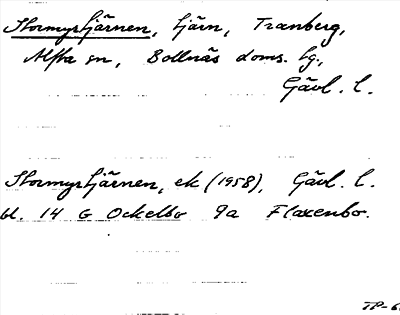 Stormyrtjärnen, tjärn, Tranberg,
Alfta sn, Bollnäs doms. tg.,
Gävl. l.
Stormyrtjärnen, ek (1958), Gävl. l.
bl. 14 G Ockelbo 9a Flaxenbo.